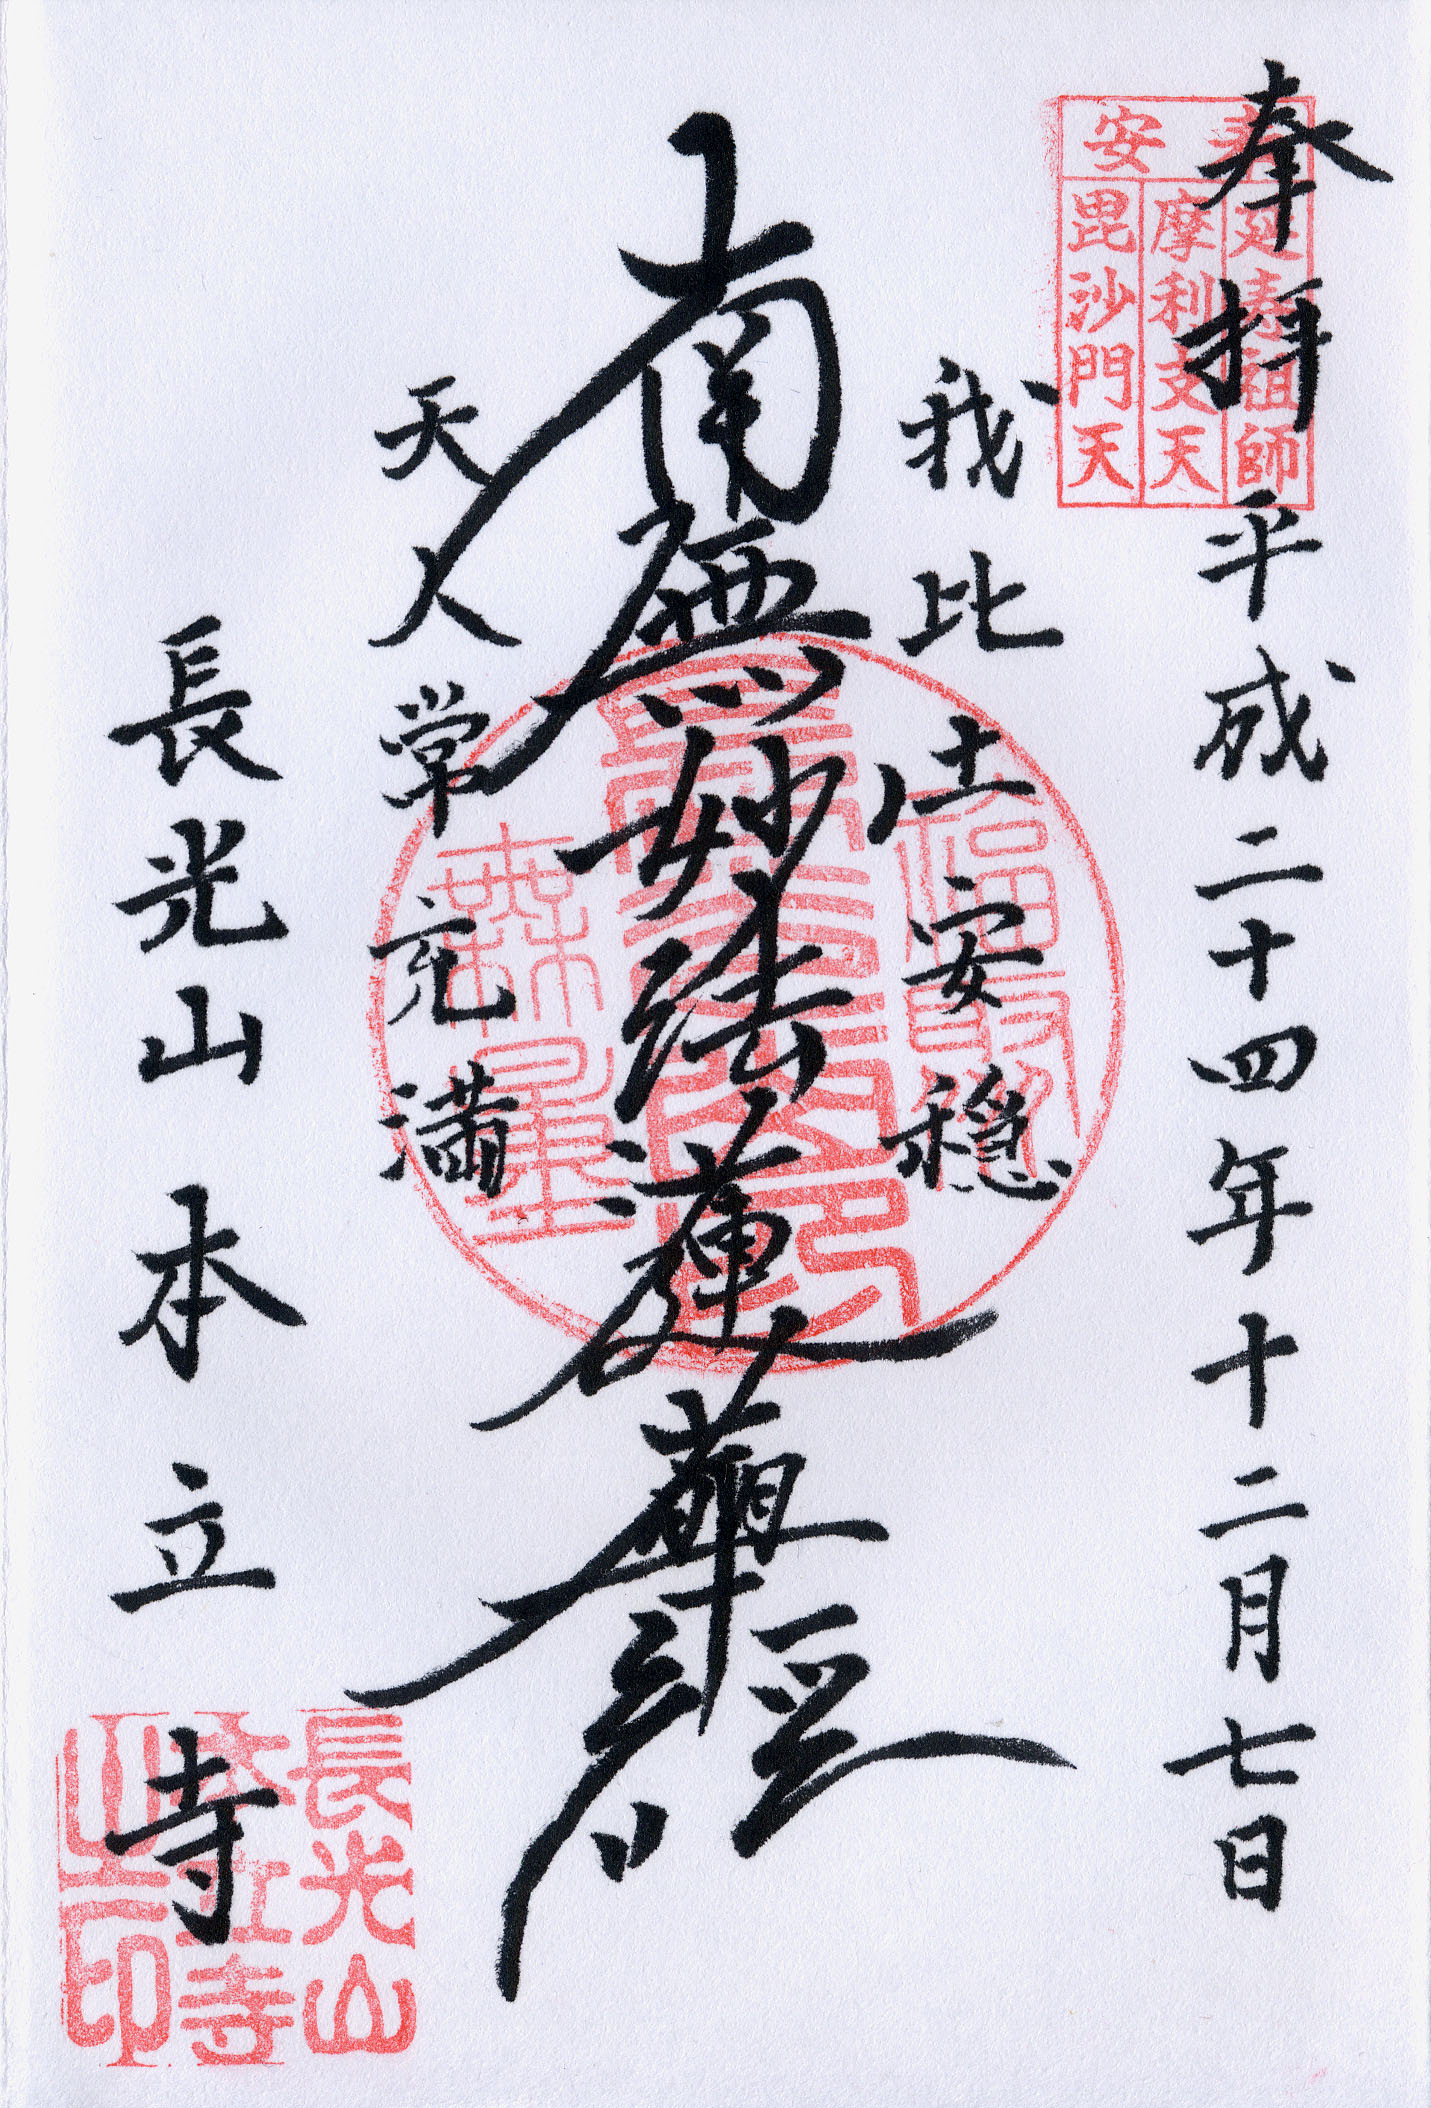 奉拝 平成二十四年十二月七日
奉安
延寿祖師
摩利支天
毘沙門天
我此土安穏
南無妙法蓮華經
天人常充満
長光山 本立寺
福聚
無量
長光山
本立寺
之印